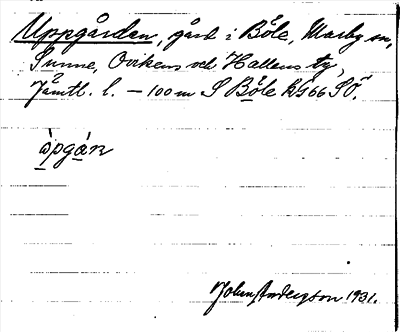 Uppgården, gård i Böle, Marby sn,
Sunne, Ovikens och Hallens tg,
Jämtl. l. — 100 m S Böle kg 66 SÖ.
òpgán
John Anderzson 1931.